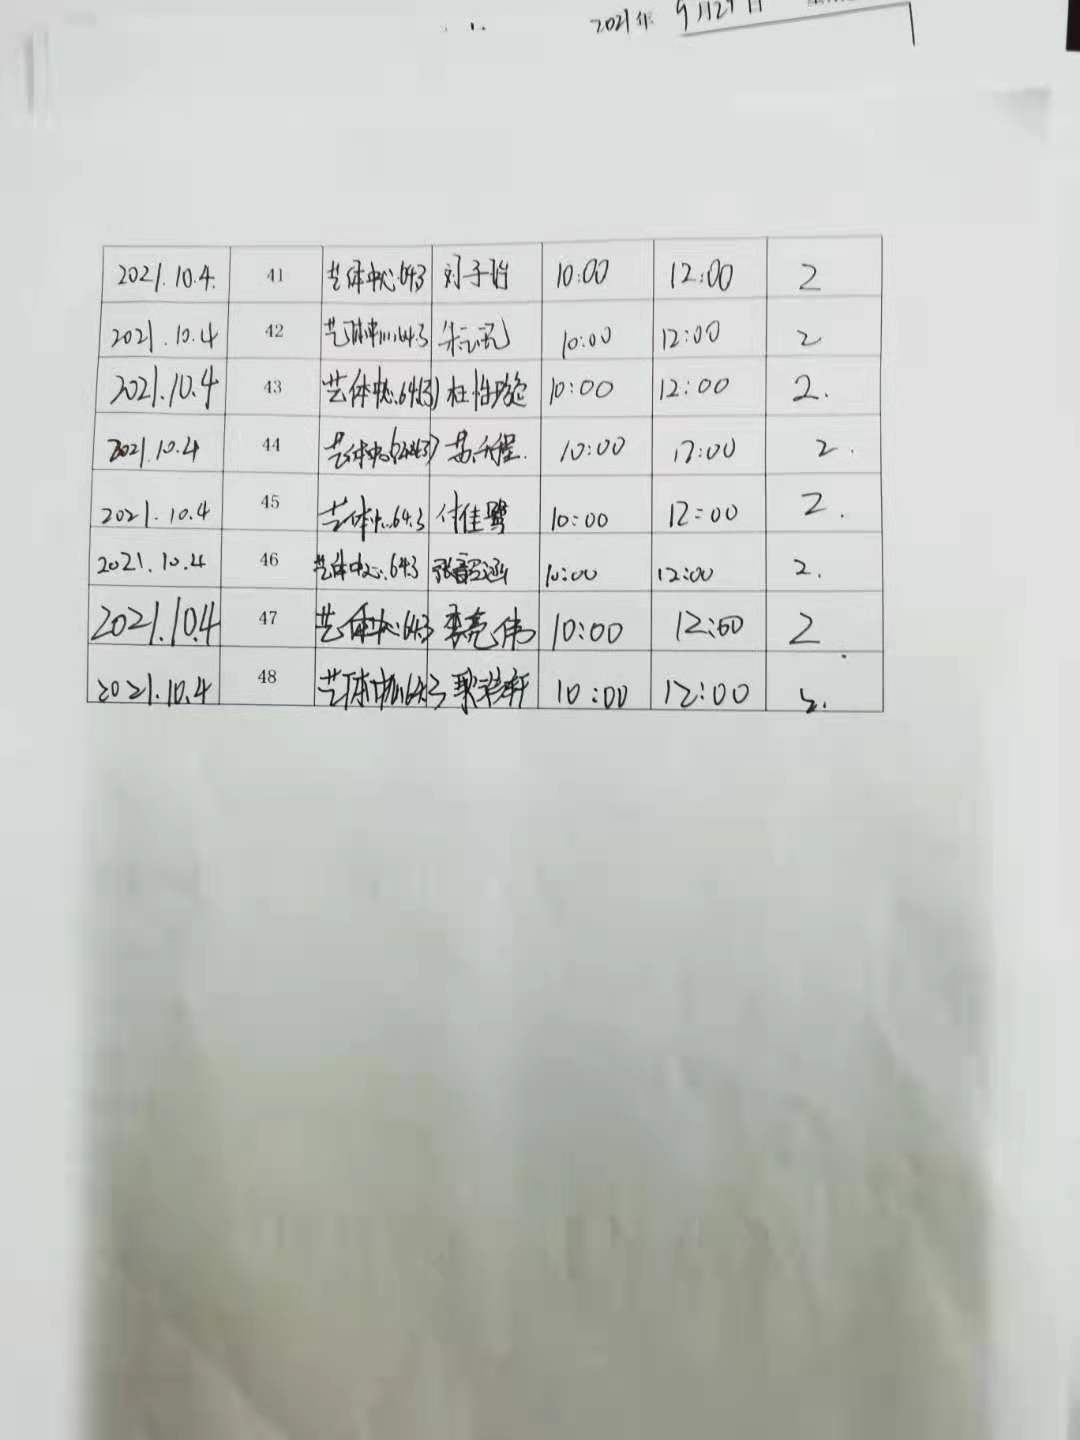 2021年 9月29日
2021.10.4. 41 艺体中心643 刘子怡 10:00 12:00 2
2021.10.4 42 艺体中心643 朱 10:00 12:00 2
2021.10.4 43 艺体中心643 杜怡璇 10:00 12:00 2.
2021.10.4 44 艺体中心643 苏千程. 10:00 12:00 2.
2021.10.4 45 艺体中心643 付佳鹭 10:00 12:00 2.
2021.10.4 46 艺体中心.643 张韶涵 10:00 12:00 2.
2021.10.4 47 艺体中心643 李亮伟 10:00 12:00 2.
2021.10.4 48 艺体中心643 轩 10:00 12:00 2.